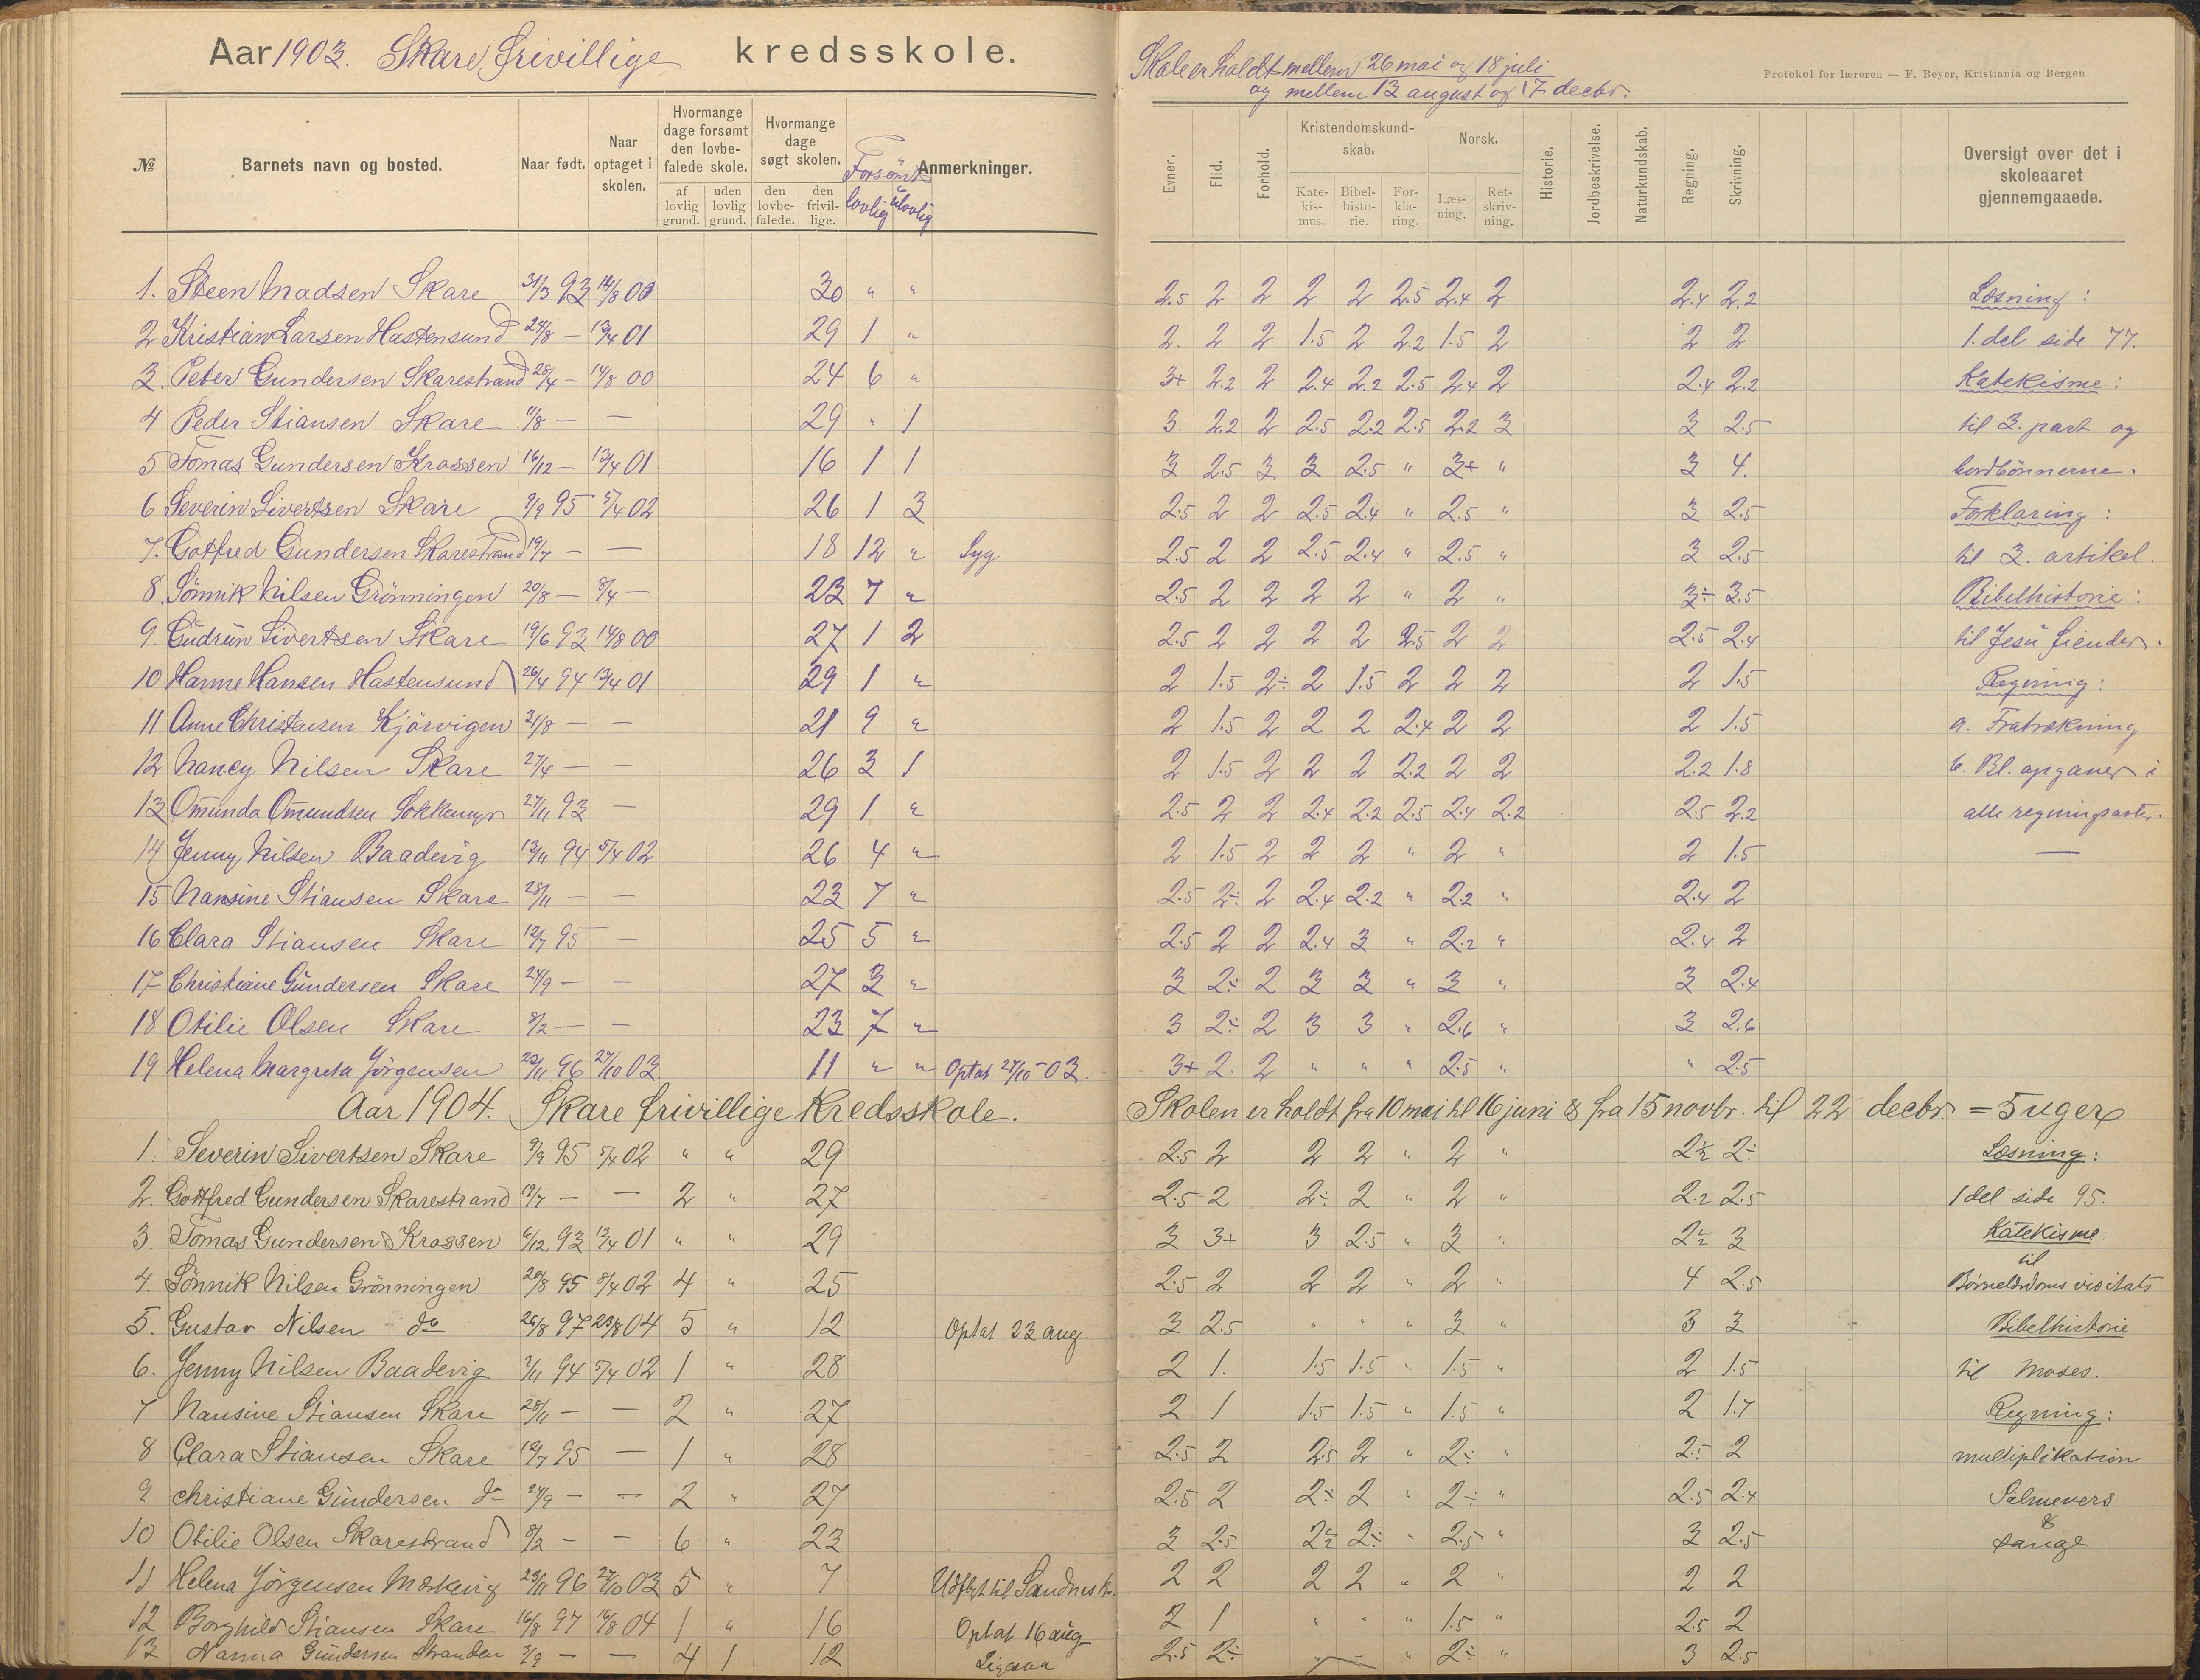 Aar 1903. Skare frivillige kredsskole.
Skole er holdt mellem 26 mai og 18 juli
og mellem 13 august og 17 decbr.
Protokol for læreren — F. Beyer, Kristiania og Bergen
№ Barnets navn og bosted. Naar født. Naar optaget i skolen. Hvormange dage forsømt den lovbefalede skole. af lovlig grund. uden lovlig grund. Hvormange dage søgt skolen. den lovbefalede. den frivillige. Forsömt lovlig ulovlig Anmerkninger.
Evner. Flid. Forhold. Kristendomskundskab. Katekismus. Bibelhistorie. Forklaring. Norsk. Læsning. Retskrivning. Historie. Jordbeskrivelse. Naturkundskab. Regning. Skrivning. Oversigt over det i skoleaaret gjennemgaaede.
1. Steen Madsen Skare 31/3 93 14/8 00 30 " " 2.5 2 2 2 2 2.5 2.4 2 2.4 2.2 Læsning:
2 Kristian Larsen Hastensund 24/8 — 13/4 01 29 1 " 2. 2 2 1.5 2 2.2 1.5 2 2 2 1. del side 77.
3. Peter Gundersen Skarestrand 28/4 — 14/8 00 24 6 " 3+ 2.2 2 2.4 2.2 2.5 2.4 2 2.4 2.2 Katekisme:
4 Peder Stiansen Skare 9/8 — — 29 " 1 3. 2.2 2 2.5 2.2 2.5 2.2 3 3 2.5 til 3. part og
5 Tomas Gundersen Krossen 16/12 — 13/4 01 16 1 1 3 2.5 3 3 2.5 " 3+ " 3 4. bordbönnerne.
6 Severin Sivertsen Skare 9/9 95 5/4 02 26 1 3 2.5 2 2 2.5 2.4 " 2.5 " 3 2.5 Forklaring:
7. Gotfred Gundersen Skarestrand 19/7 — — 18 12 " Syg 2.5 2 2 2.5 2.4 " 2.5 " 3 2.5 til 3. artikel.
8. Sönnik Nilsen Grönningen 20/8 — 8/4 — 23 7 " 2.5 2 2 2 2 " 2 " 3÷ 3.5 Bibelhistorie:
9. Gudrun Sivertsen Skare 19/6 93 14/8 00 27 1 2 2.5 2 2 2 2 2.5 2 2 2.5 2.4 til Jesu fiender.
10 Hanne Hansen Hastensund 26/4 94 13/4 01 29 1 " 2 1.5 2÷ 2 1.5 2 2 2 2 1.5 Regning:
11 Anne Christensen Kjörvigen 31/8 — — 21 9 " 2 1.5 2 2 2 2.4 2 2 2 1.5 a. Fratrækning
12 Nancy Nilsen Skare 27/4 — — 26 3 1 2 1.5 2 2 2 2.2 2 2 2.2 1.8 b. Bl. opgaver i
13 Omunda Omundsen 27/11 93 — 29 1 " 2.5 2 2 2.4 2.2 2.5 2.4 2.2 2.5 2.2 alle regningsarter.
14 Jenny Nilsen Baadevig 13/11 94 5/4 02 26 4 " 2 1.5 2 2 2 " 2 " 2 1.5 —
15 Nansine Stiansen Skare 28/11 — — 23 7 " 2.5 2÷ 2 2.4 2.2 " 2.2 " 2.4 2
16 Clara Stiansen Skare 12/7 95 — 25 5 " 2.5 2 2 2.4 3 " 2.2 " 2.4 2
17 Christiane Gundersen Skare 24/9 — — 27 3 " 3 2÷ 2 3 3 " 3 " 3 2.4
18 Otilie Olsen Skare 8/2 — — 23 7 " 3 2÷ 2 3 3 " 2.6 " 3 2.6
19 Helena Margreta Jörgensen 23/11 96 27/10 03 11 " " Optat 27/10 - 03. 3+ 2. 2 " " " 2.5 " " 2.5
Aar 1904. Skare frivillige Kredsskole. Skolen er holdt fra 10 mai til 16 juni & fra 15 novbr. til 22 decbr. = 5 uger
1. Severin Sivertsen Skare 9/9 95 5/4 02 " " 29 2.5 2 2 2 " 2 " 2÷ 2÷ Læsning:
2. Gottfred Gundersen Skarestrand 19/7 — — 2 " 27 2.5 2 2÷ 2 " 2 " 2.2 2.5 1 del side 95.
3. Tomas Gundersen Krossen 6/12 93 13/4 01 " " 29 3 3+ 3 2.5 " 3 " 2÷ 3 Katekisme
4. Sönnik Nilsen Grönningen 20/8 95 8/4 02 4 " 25 2.5 2 2 2 " 2 " 4 2.5 til visitats
5. Gustav Nilsen do 26/8 97 23/8 04 5 " 12 Optat 23 aug 3 2.5 " " " 3 " 3 3 Bibelhistorie
6. Jenny Nilsen Baadevig 3/11 94 5/4 02 1 " 28 2 1. 1.5 1.5 " 1.5 " 2 1.5 til Moses.
7 Nansine Stiansen Skare 28/11 — — 2 " 27 2 1 1.5 1.5 " 1.5 " 2 1.7 Regning:
8 Clara Stiansen Skare 12/7 95 — 1 " 28 2.5 2 2.5 2 " 2÷ " 2.5 2 multiplikation
9 Christiane Gundersen do 24/9 — — 2 " 27 2.5 2 2÷ 2 " 2÷ " 2.5 2.4 Salmevers
10 Otilie Olsen Skarestrand 8/2 — — 6 " 23 3 2.5 2÷ 2÷ " 2.5 " 3 2.5 & sange
11 Helena Jörgensen 23/11 96 27/10 03 5 " 7 Udflyt til Sandnes kr. 2 2 2 2 " 2 " 2 2
12 Borghild Stiansen Skare 16/8 97 16/8 04 1 " 16 Optat 16 aug 2 1 " " " 1.5 " 2.5 2
13 Nanna Gundersen Stranden 3/9 — — 4 1 12 Ligesaa 2.5 2÷ " — " 2÷ " 3 2.5